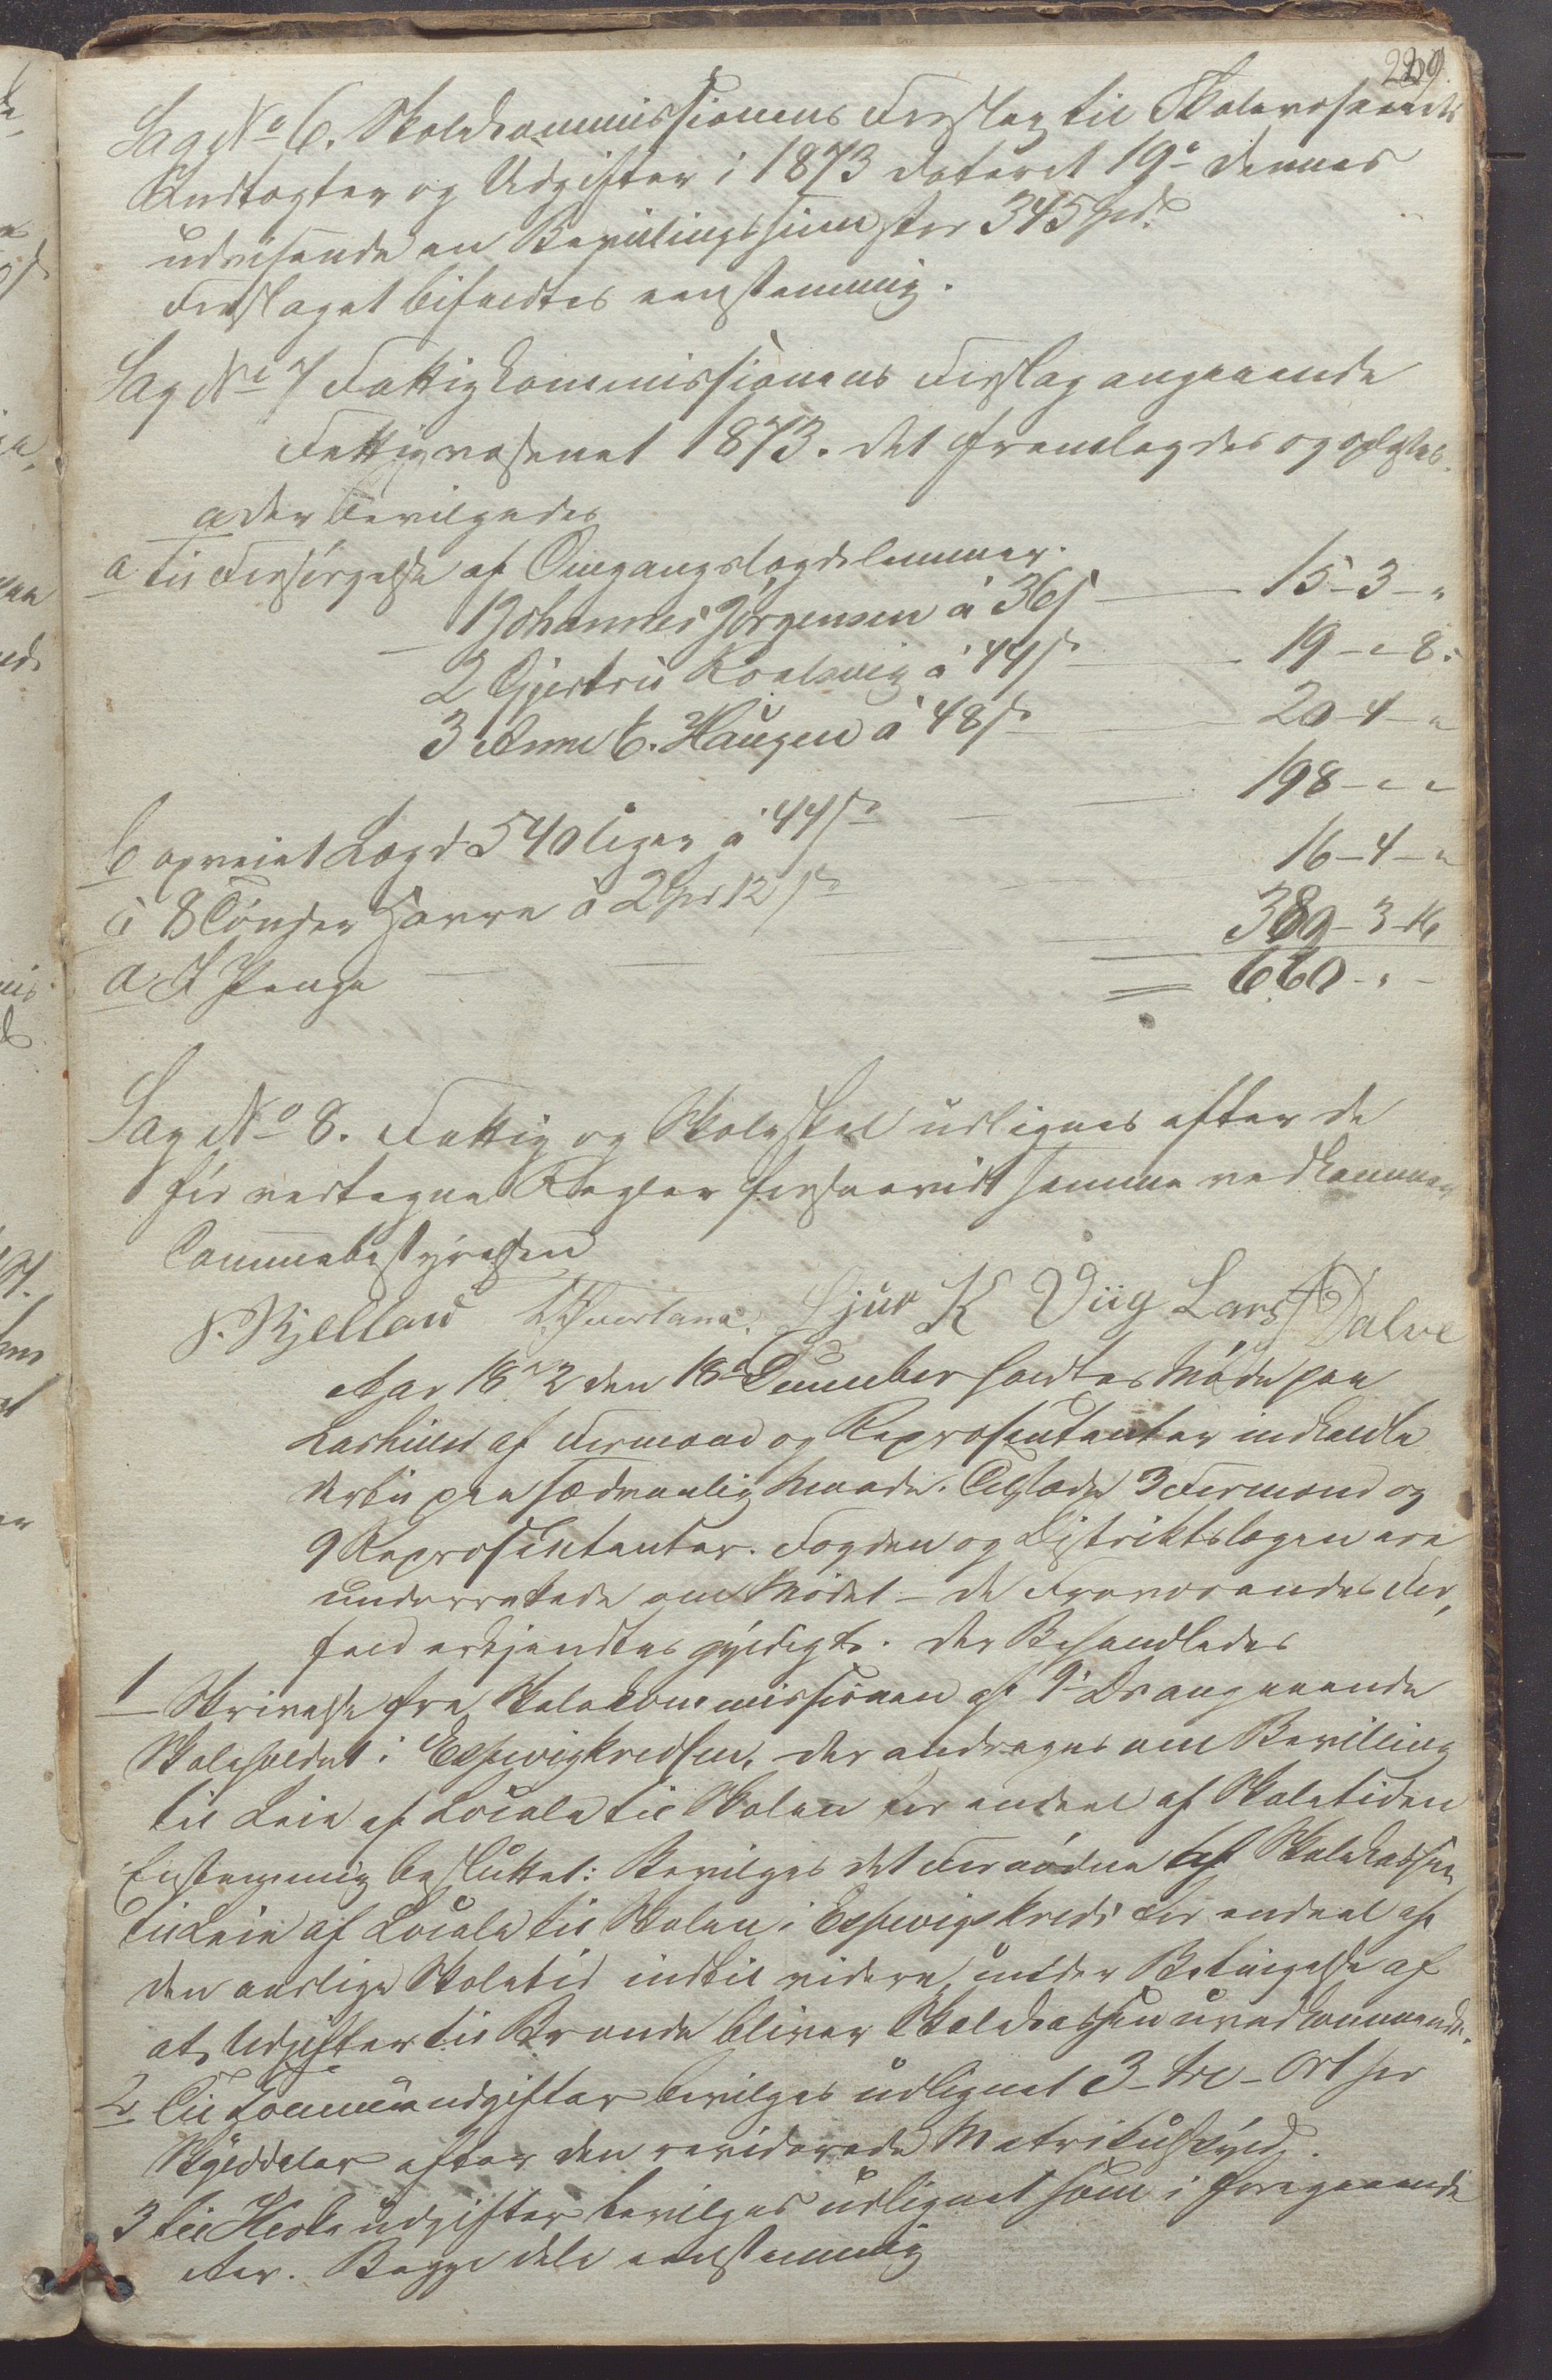 229.
Sag No 6. Skolekommissionens Forslag til Skolevæsenets
Indtægter og Udgifter i 1873 dateret 19e dennes
udvisende en Bevilingssum stor 345 Spd.
Forslaget bifaldtes eenstemmig.
Sag No 7 Fattigkommissionens Forslag angaaende
Fattigvæsenet 1873. det fremlagdes og oplæstes.
a der bevilgedes
a til Forsørgelse af Omgangslægdslemmer.
1 Johannes Jörgensen á 36 s 15-3-"
2 Gjertrú Roalsvig á 44 s 19-"-8.
3 Anne E. Haugen á 48 s 20-4-"
198-"-"
b opveiet Lægd 540 Uger á 44 s
16-4-"
c 8 Tönder Havre á 2 Spd 12 s
389-3-16
d I Penge
660-"-
Sag No 8. Fattig og Skoleskat udlignes efter de
før vedtagne Regler forsaavidt samme vedkommer
Communebestyrelsen
J. Kjelland T. Sverland. Sjur K Viig Lars A Dalve
Aar 1872 den 18de December holdtes Møde paa
af Formænd og Repræsentanter indkaldte
dertil paa sædvanlig Maade. Tilstæde 3 Formænd og
9 Repræsentanter. Fogden og Distriktslægen ere
underrettede om Mødet - de Fraværendes For,
fald erkjendtes gyldigt. Der Behandledes
1 Skrivelse fra Skolekommissionen af 9de Ds angaaende
Skoleholdet i Espevigkredsen, der andrages om Bevilling
til Leie af Locale til Skolen for endeel af Skoletiden
Enstemmig besluttet: Bevilges det Fornødne af Skolekassen
til Leie af Locale til Skolen i Espevigs kreds for endeel af
den aarlige Skoletid indtil videre, under Betingelse af
at Udgifter til Brænde bliver Skolekassen uvedkommende.
2 Til Kommuneudgifter bevilges udlignet 3 - tre - Ort pr
Skylddaler efter den reviderede Matrikulskyld.
3 til Kirkeudgifter bevilges udlignet som i foregaaende
Aar. Begge dele eenstemmig